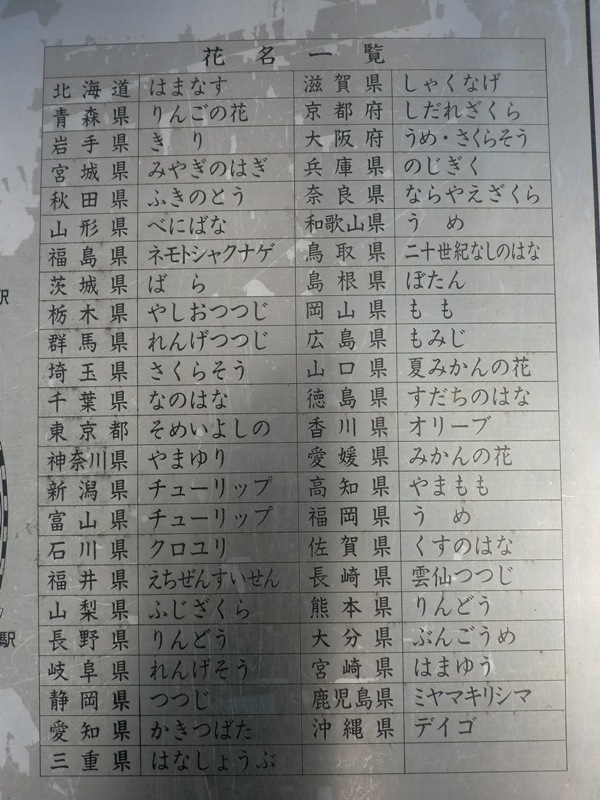 花名一覧
北海道 はまなす
青森県 りんごの花
岩手県 きり
宮城県 みやぎのはぎ
秋田県 ふきのとう
山形県 べにばな
福島県 ネモトシャクナゲ
茨城県 ばら
栃木県 やしおつつじ
群馬県 れんげつつじ
埼玉県 さくらそう
千葉県 なのはな
東京都 そめいよしの
神奈川県 やまゆり
新潟県 チューリップ
富山県 チューリップ
石川県 クロユリ
福井県 えちぜんすいせん
山梨県 ふじざくら
長野県 りんどう
岐阜県 れんげそう
静岡県 つつじ
愛知県 かきつばた
三重県 はなしょうぶ
滋賀県 しゃくなげ
京都府 しだれざくら
大阪府 うめ・さくらそう
兵庫県 のじぎく
奈良県 ならやえざくら
和歌山県 うめ
鳥取県 二十世紀なしのはな
島根県 ぼたん
岡山県 もも
広島県 もみじ
山口県 夏みかんの花
徳島県 すだちのはな
香川県 オリーブ
愛媛県 みかんの花
高知県 やまもも
福岡県 うめ
佐賀県 くすのはな
長崎県 雲仙つつじ
熊本県 りんどう
大分県 ぶんごうめ
宮崎県 はまゆう
鹿児島県 ミヤマキリシマ
沖縄県 デイゴ
駅
駅